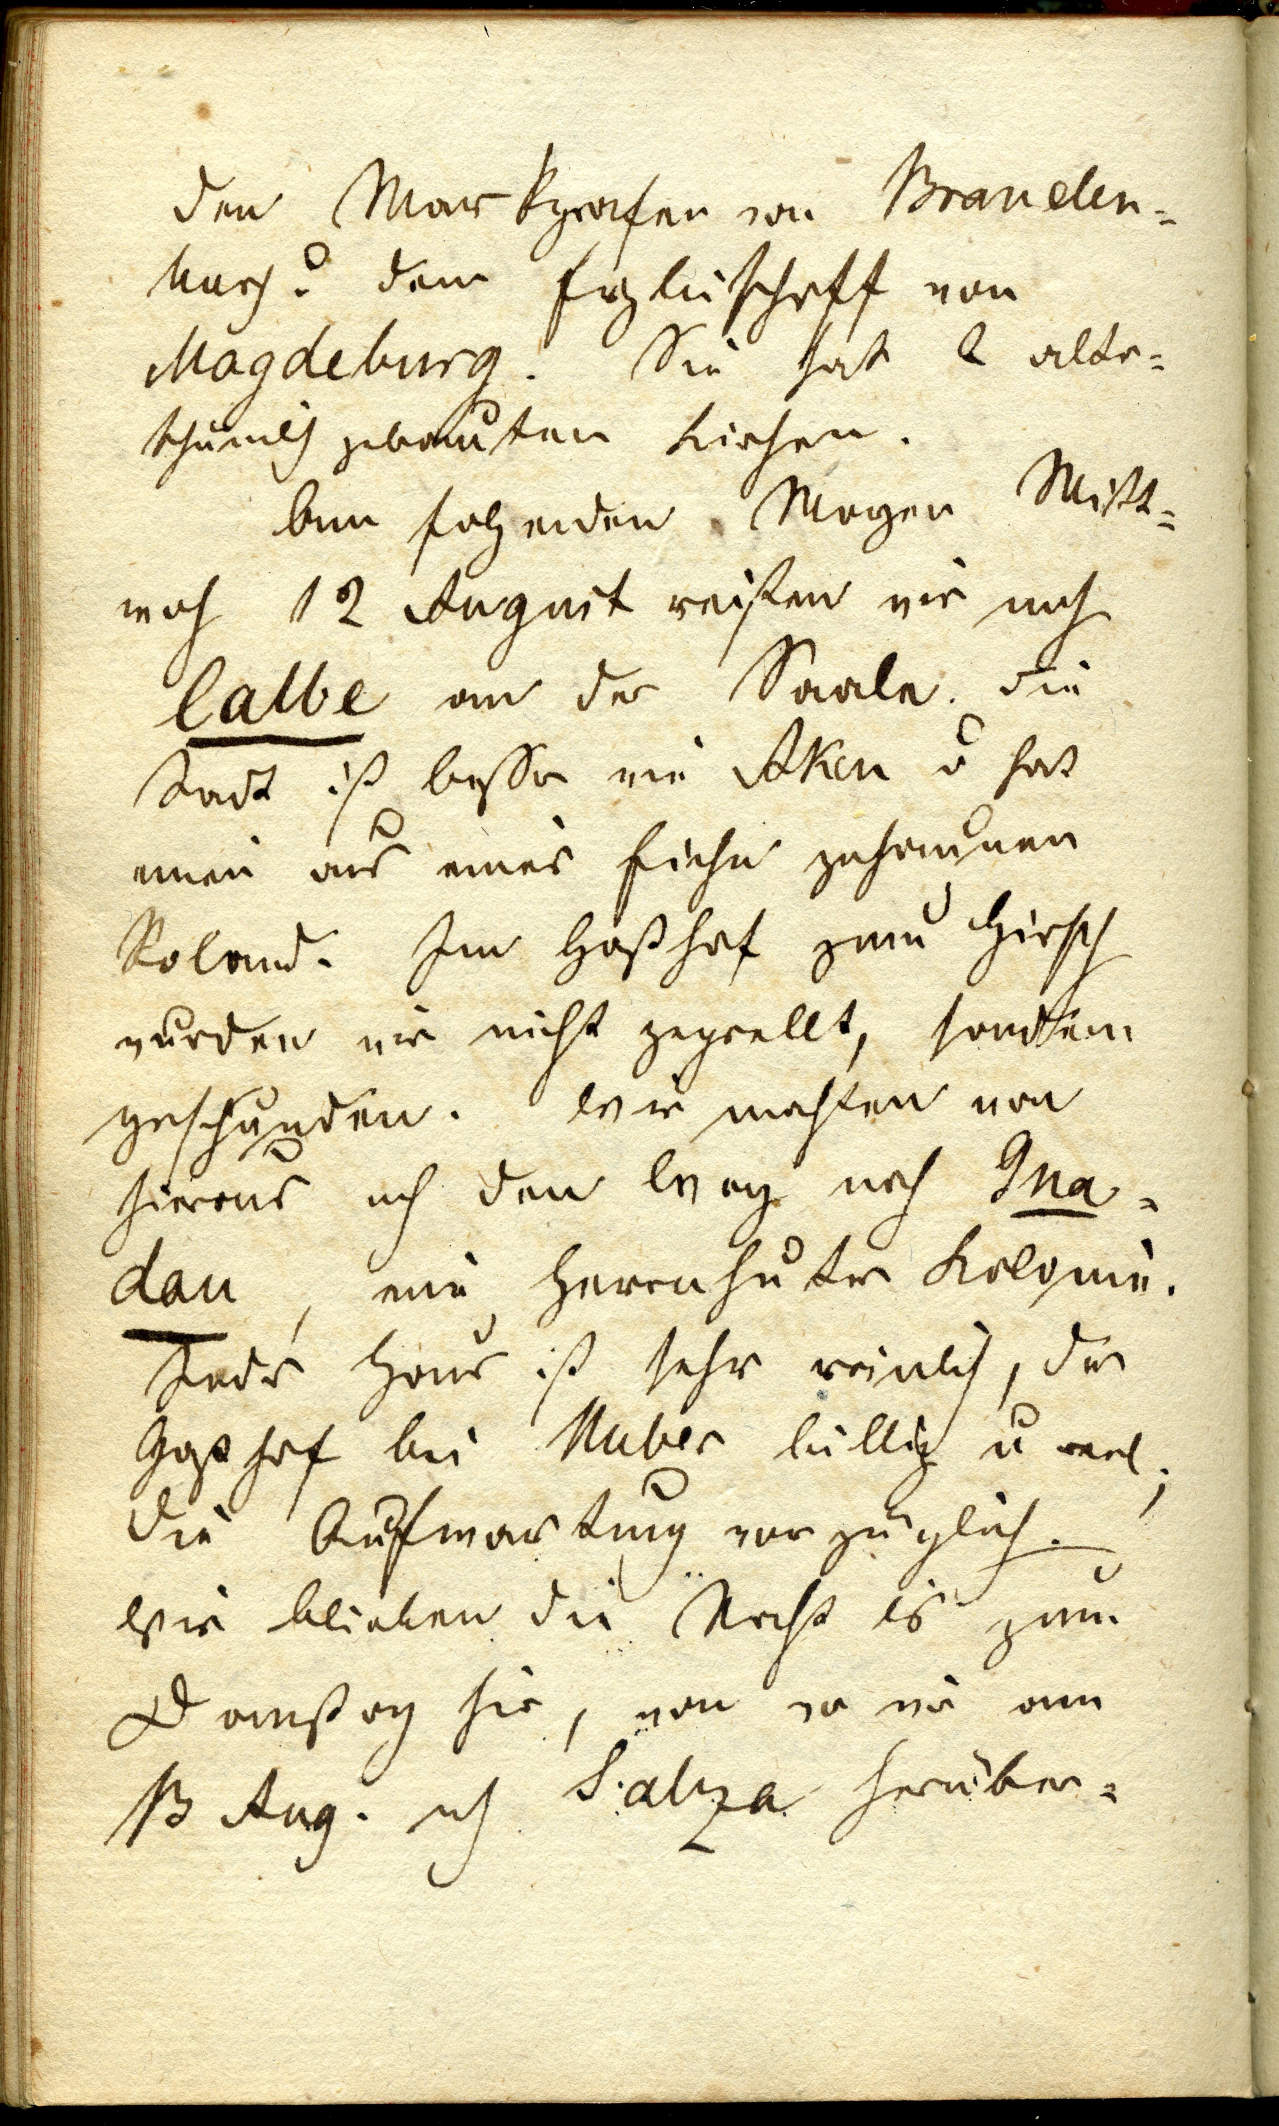 den Markgrafen von Branden=
burg u dem Erzbischoff von
Magdeburg. Sie hat 2 alter=
thümlich gebauten Kirchen.
Am folgenden Morgen Mitt=
woch 12 August reisten wir nach
Calbe an der Saale. Die
Stadt ist besser wie Aken u hat
einen aus einer Eiche gehauenen
Roland. Im Gasthof zum Hirsch
wurden wir nicht geprellt, sondern
geschunden. Wir machten von
hieraus noch den Weg nach Gna=
dau, eine Herrnhuter Kolonie.
Jedes Haus ist sehr reinlich, der
Gasthof bei billig u reel;
die Aufwartung vorzüglich.
Wir blieben die Nacht bis zum
Donnerstag hier, von wo wir am
13 Aug. nach Salza herüber=